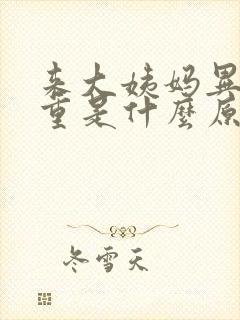 来大姨妈異
重是什麼原
冬雪天